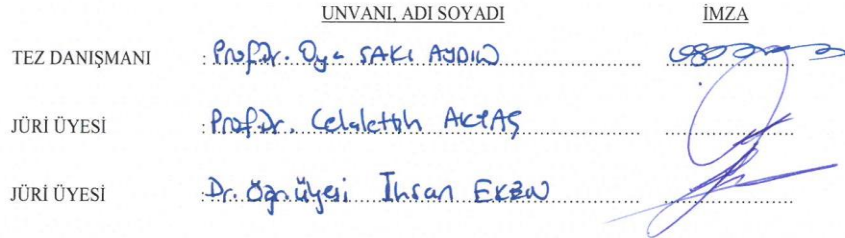 UNVANI, ADI SOYADI İMZA
TEZ DANIŞMANI : Prof.Dr. Oya SAKI AYDIN
JÜRİ ÜYESİ : Prof.Dr. Celalettin AKTAŞ
JÜRİ ÜYESİ : Dr. Öğr. Üyesi İhsan EKEN